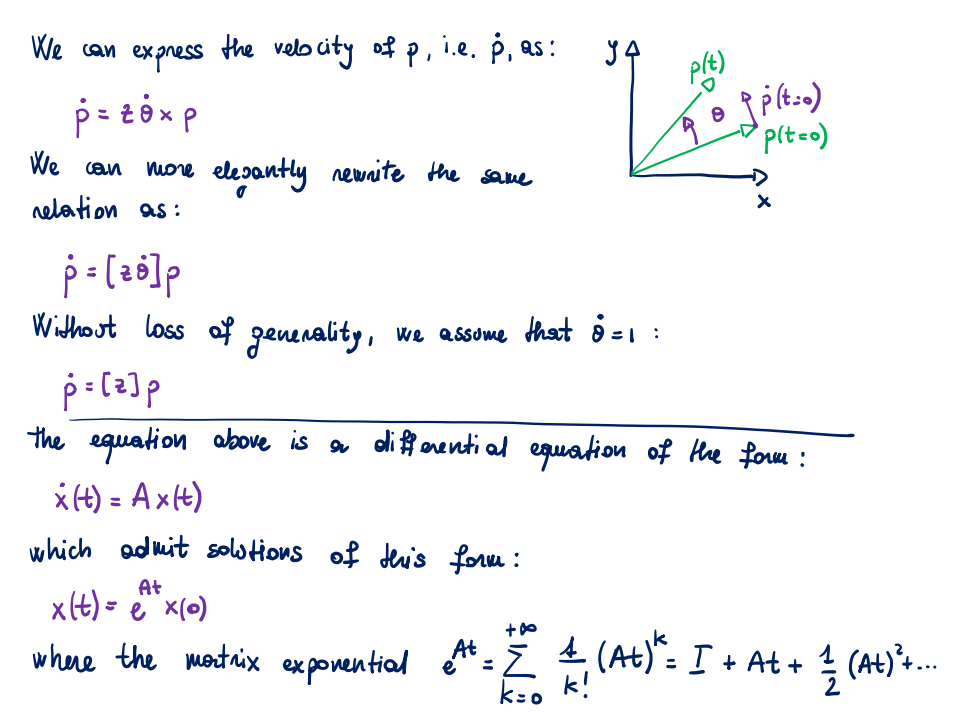 We can express the velocity of p, i.e. ṗ, as:
ṗ = z θ̇ × p
We can more elegantly rewrite the same
relation as:
ṗ = [z θ̇] p
Without loss of generality, we assume that θ̇ = 1 :
ṗ = [z] p
the equation above is a differential equation of the form:
ẋ(t) = A x(t)
which admit solutions of this form:
x(t) = e^{At} x(0)
where the matrix exponential e^{At} = ∑_{k=0}^{+∞} 1/k! (At)^k = I + At + 1/2 (At)^2 + ...
y
p(t)
θ
ṗ(t=0)
p(t=0)
x